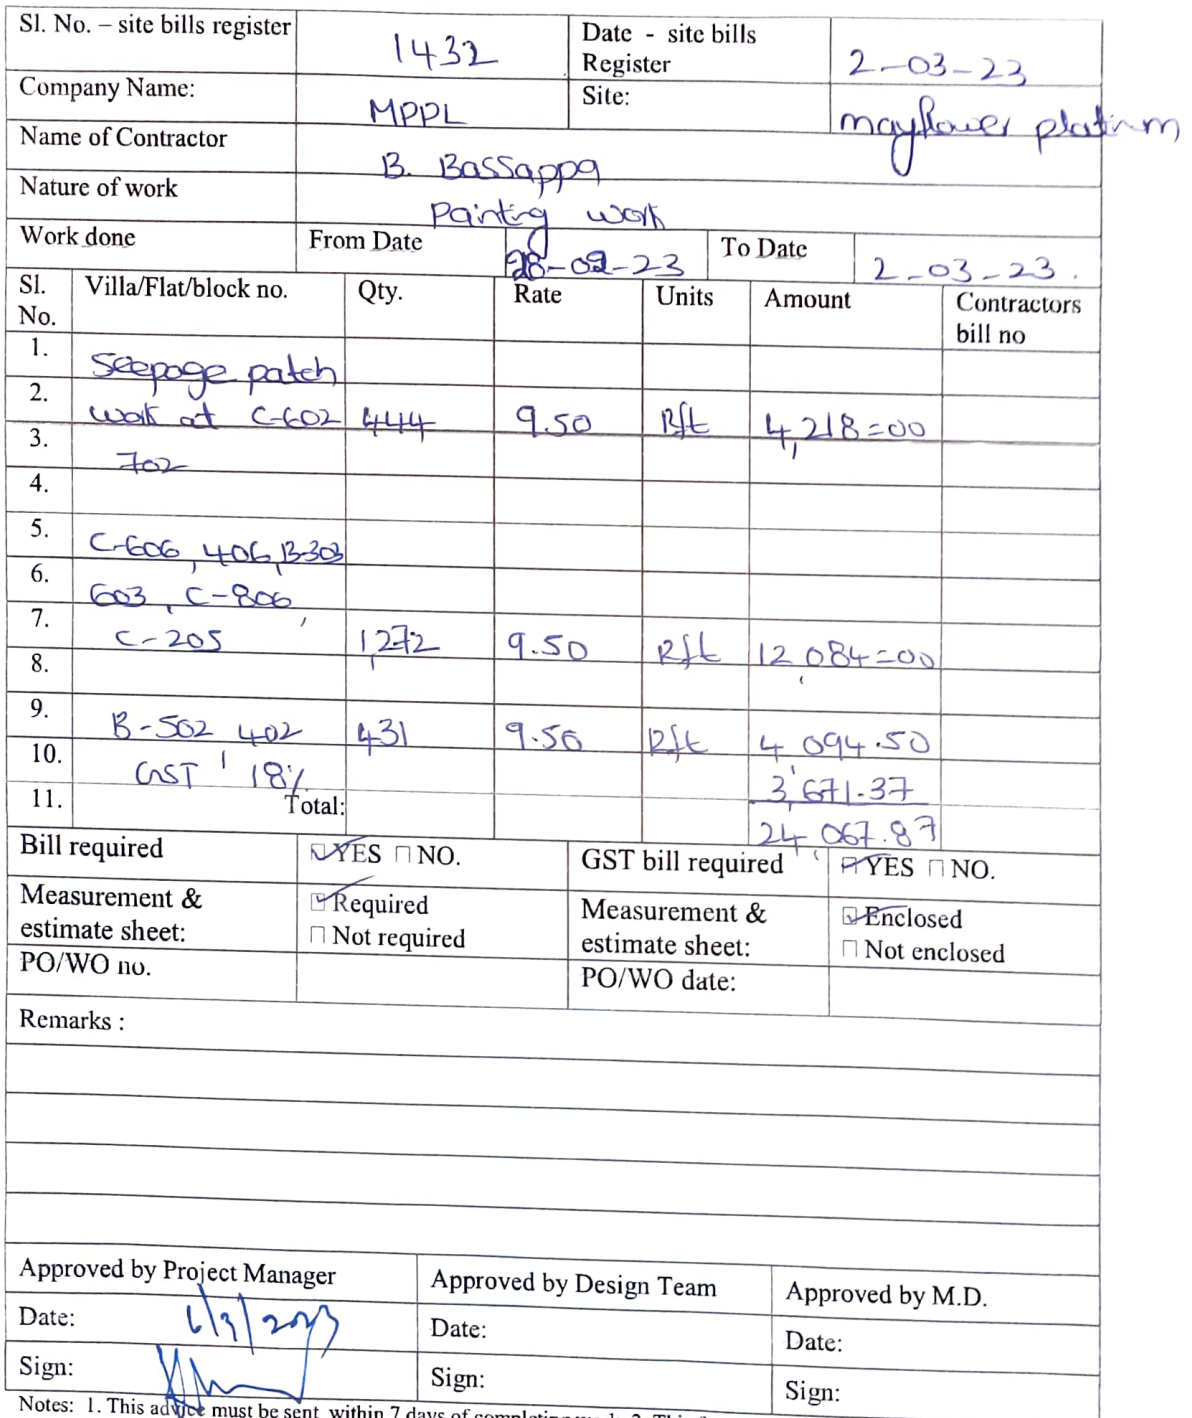 Sl. No. – site bills register 1432 Date - site bills Register 2-03-23
Company Name: MPPL Site: mayflower platinum
Name of Contractor B. Bassappa
Nature of work Painting work
Work done From Date 28-02-23 To Date 2-03-23.
Sl. No. Villa/Flat/block no. Qty. Rate Units Amount Contractors bill no
1. Seepage patch
2. work at C-602 444 9.50 Rft 4,218=00
3. 702
4.
5. C-606, 406, B-303
6. 603, C-806,
7. C-205 1,272 9.50 Rft 12,084=00
8.
9. B-502, 402 431 9.50 Rft 4,094.50
10. GST 18% 3,671.37
11. Total: 24,067.87
Bill required YES NO. GST bill required YES NO.
Measurement & estimate sheet: Required Not required Measurement & estimate sheet: Enclosed Not enclosed
PO/WO no. PO/WO date:
Remarks :
Approved by Project Manager Approved by Design Team Approved by M.D.
Date: 6/3/2023 Date: Date:
Sign: Sign: Sign:
Notes: 1. This advice must be sent within 7 days of